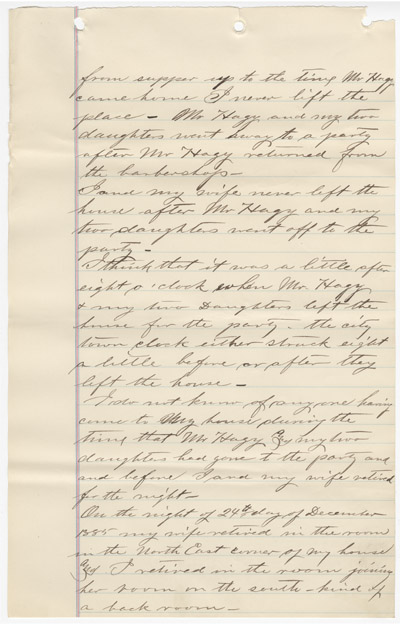 from supper up to the time Mr Hagy
came home I never lift the
place - Mr Hagy and my two
daughters went away to a party
after Mr Hagy returned from
the barbershop -
I and my wife never left the
house after Mr Hagy and my
two daughters went off to the
party -
I think that it was a little after
eight o'clock when Mr. Hagy
& my two Daughters left the
house for the party. The city
town clock either struck eight
a little before or after they
left the house -
I do not know of any one having
come to my house during the
time that Mr Hagy & my two
daughters had gone to the party and
and before I and my wife retired
for the night -
On the night of 24th day of December
1885 my wife retired in the room
in the North East corner of my house
and I retired in the room joining
her room on the south - kind of
a back room -